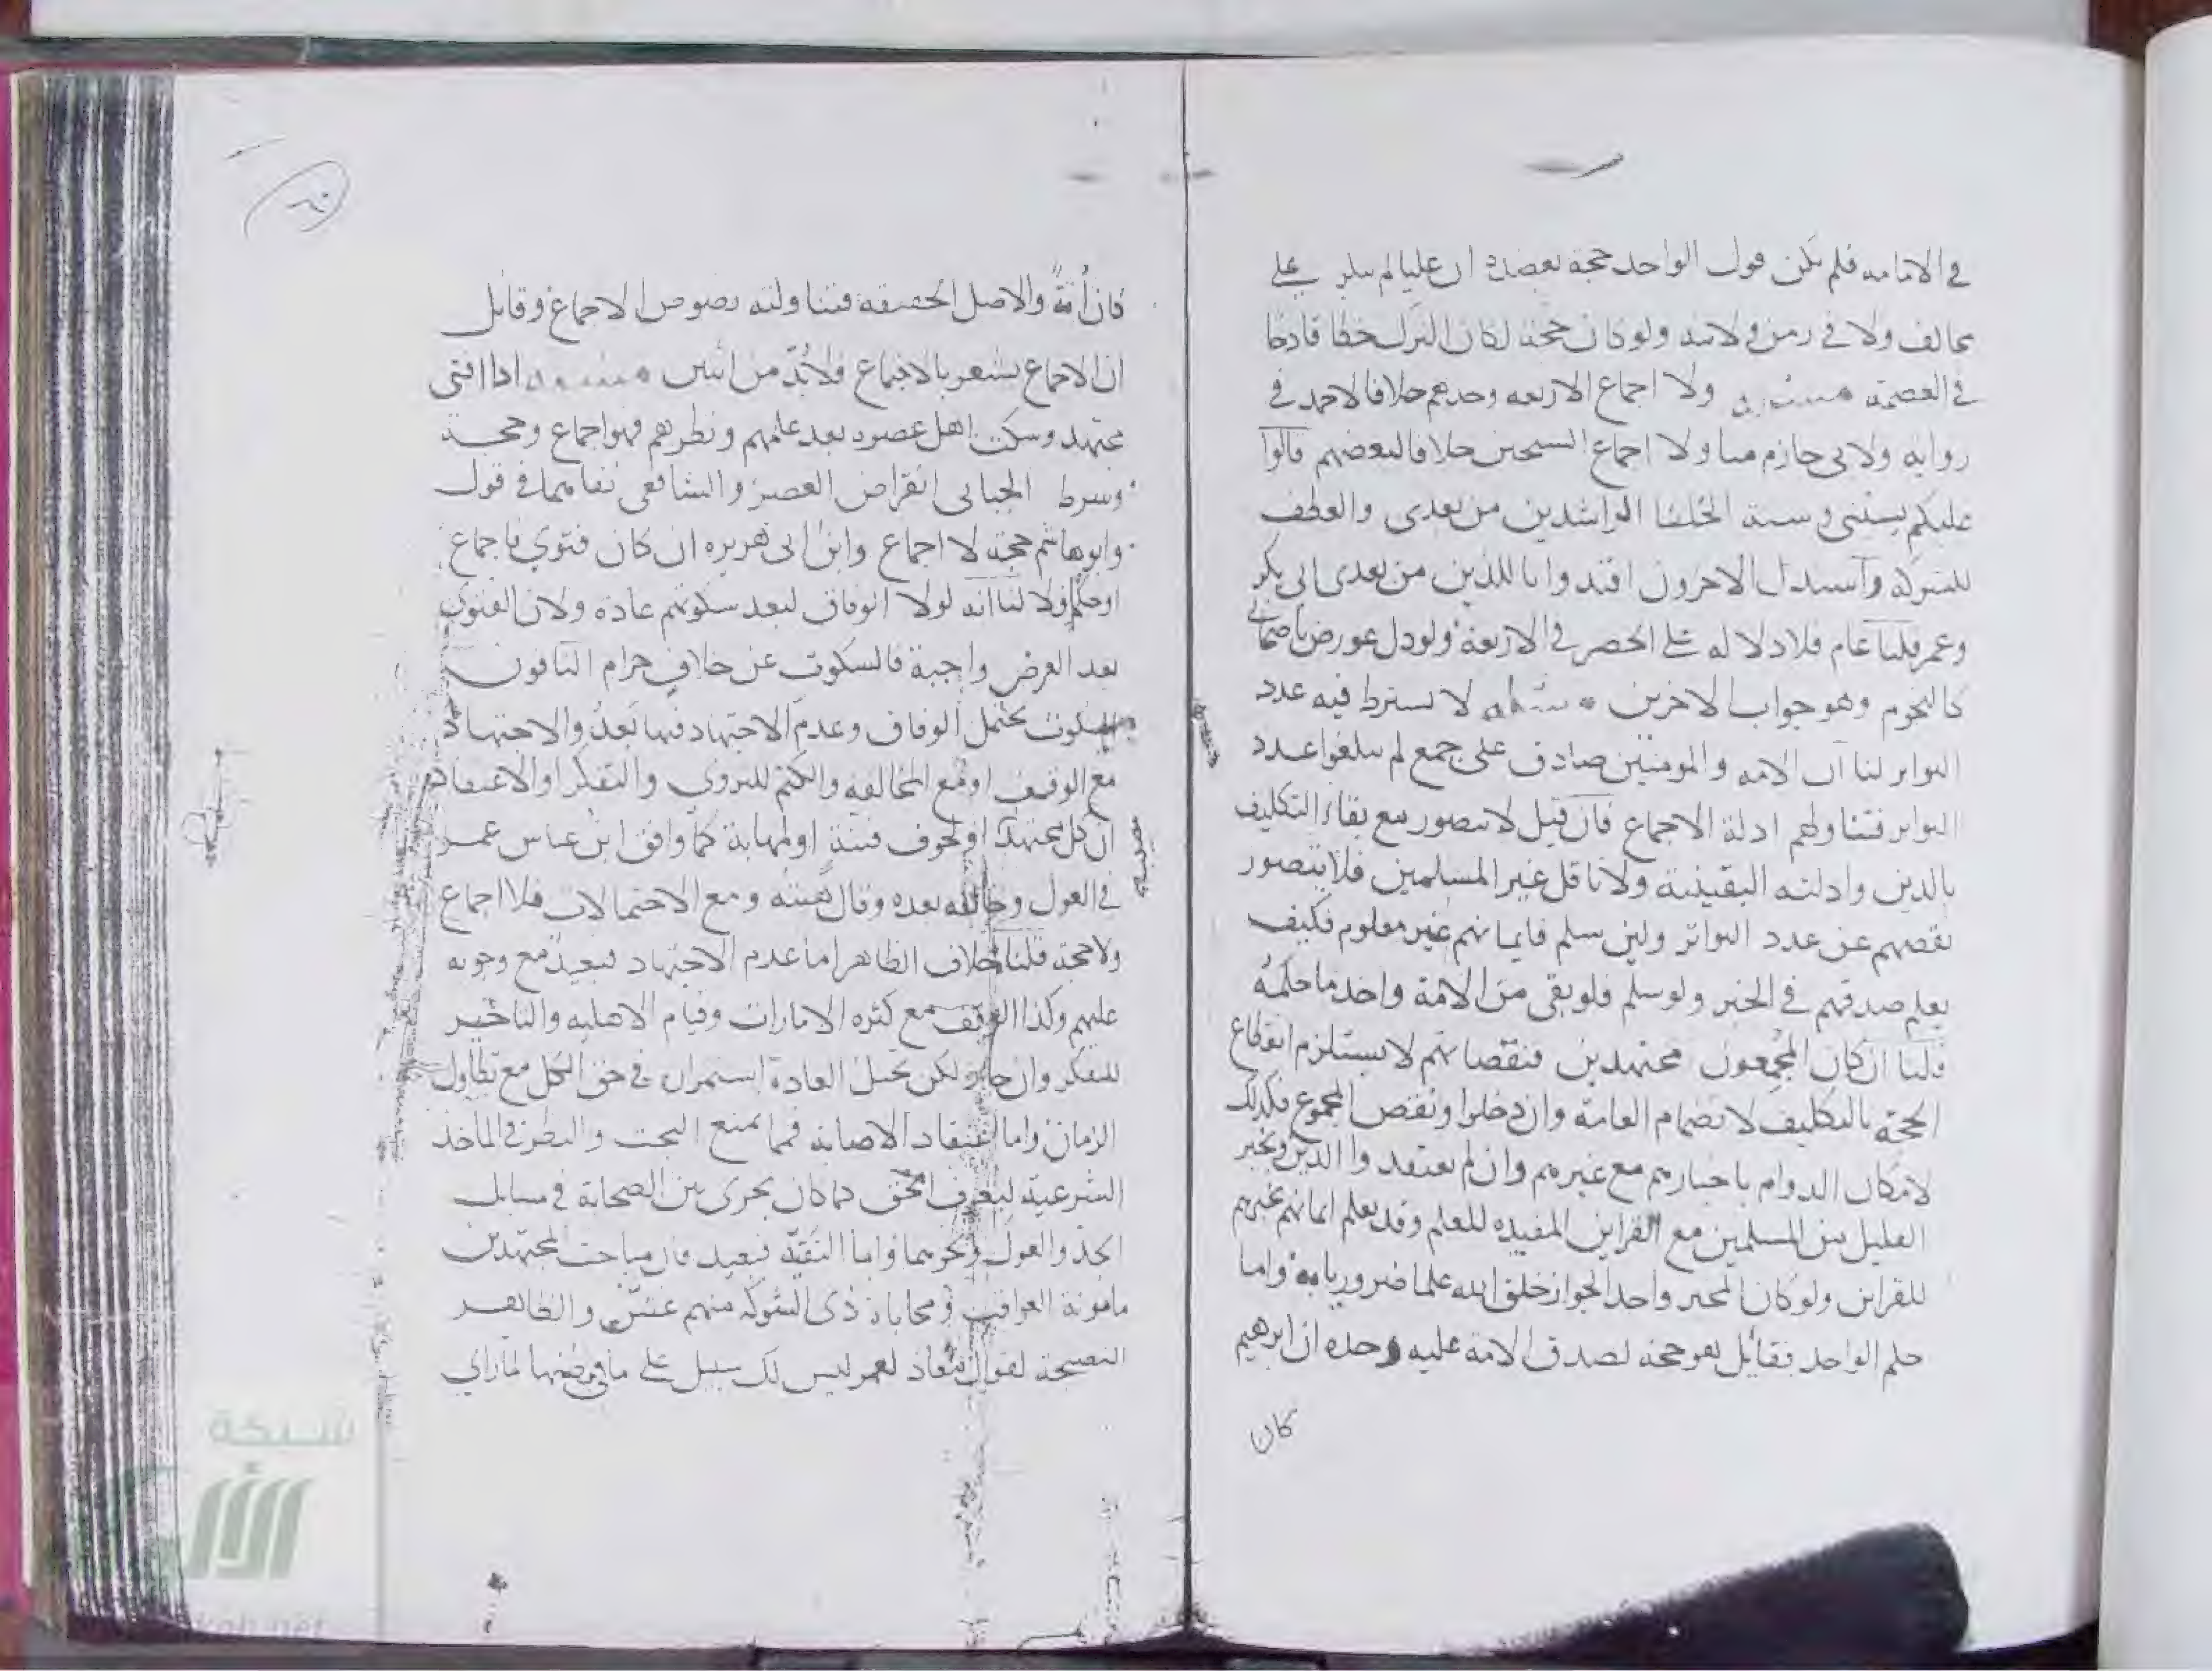 في الامامة فلم يكن قول الواحد حجة بعضده ان عليا لم ينكر على
مخالف ولا في زمن ولايته ولو كان حجة لكان الترك خطا قادحا
في العصمة مسئلة ولا اجماع الاربعة وحدهم خلافا لاحمد في
رواية ولابي حازم منا ولا اجماع الشيخين خلافا لبعضهم قالوا
عليكم بسنتي وسنة الخلفا الراشدين من بعدي والعطف
للشركة واستدل الاخرون اقتدوا باللذين من بعدي ابي بكر
وعمر قلنا عام فلا دلالة له على الحصر في الاربعة ولو دل عورض باصحابي
كالنجوم وهو جواب الاخرين مسئلة لا يشترط فيه عدد
التواتر لنا ان الامة والمومنين صادق على جمع لم يبلغوا عدد
التواتر فتناولهم ادلة الاجماع فان قيل لا يتصور مع بقاء التكليف
بالدين وادلته اليقينية ولا ناقل غير المسلمين فلا يتصور
نقصهم عن عدد التواتر ولين سلم فايمانهم غير معلوم فكيف
يعلم صدقهم في الخبر ولو سلم فلو بقي من الامة واحد ما حكمه
قلنا ان كان المجمعون مجتهدين فنقصانهم لا يستلزم انقطاع
الحجة بالتكليف لانضمام العامة وان دخلوا ونقص المجموع فكذلك
لامكان الدوام باخبارهم مع غيرهم وان لم يعتقدوا الدين وخبر
القليل من المسلمين مع القراين المفيدة للعلم وقد يعلم ايمانهم بخبرهم
للقراين ولو كان المخبر واحدا لجواز خلق الله علما ضروريا به واما
حكم الواحد فقائل هو حجة لصدق الامة عليه وحده ان ابرهيم
كان
٦٠
كان أمة والاصل الحقيقة فتناولته نصوص الاجماع وقائل
ان الاجماع يشعر بالاجتماع فلا بد من اثنين مسئلة اذا افتى
مجتهد وسكت اهل عصره بعد علمهم ونظرهم فهو اجماع وحجة
وشرط الجبائي انقراض العصر والشافعي نفاهما في قول
وابو هاشم حجة لا اجماع وابن ابي هريرة ان كان فتوى فاجماع
او حكم فلا لنا انه لولا الوفاق لبعد سكوتهم عادة ولان الفتوى
بعد العرض واجبة فالسكوت عن خلاف حرام النافون
السكوت يحتمل الوفاق وعدم الاجتهاد فيها بعد والاجتهاد
مع الوقف او مع المخالفة والكتم للتروي والتفكر او الاعتقاد
ان كل مجتهد او لخوف فتنة او لمهابة كما وافق ابن عباس عمر
في العول وخالفه بعده وقال هبته ومع الاحتمالات فلا اجماع
ولا حجة قلنا خلاف الظاهر اما عدم الاجتهاد فبعيد مع وجوبه
عليهم وكذا الوقف مع كثرة الامارات وقيام الاهلية والتاخير
للتفكر وان جاز ولكن تحيل العادة استمراره في حق الكل مع تطاول
الزمان واما اعتقاد الاصابة فما يمنع البحث والنظر في الماخذ
الشرعية ليعرف الحق كما كان يجري بين الصحابة في مسايل
الجد والعول ونحوهما واما التقية فبعيد فان مباحث المجتهدين
مامونة العواقب ومحاباة ذي الشوكة منهم غش والظاهر
النصيحة لقول معاذ لعمر ليس لك سبيل على ما في بطنها لما راى